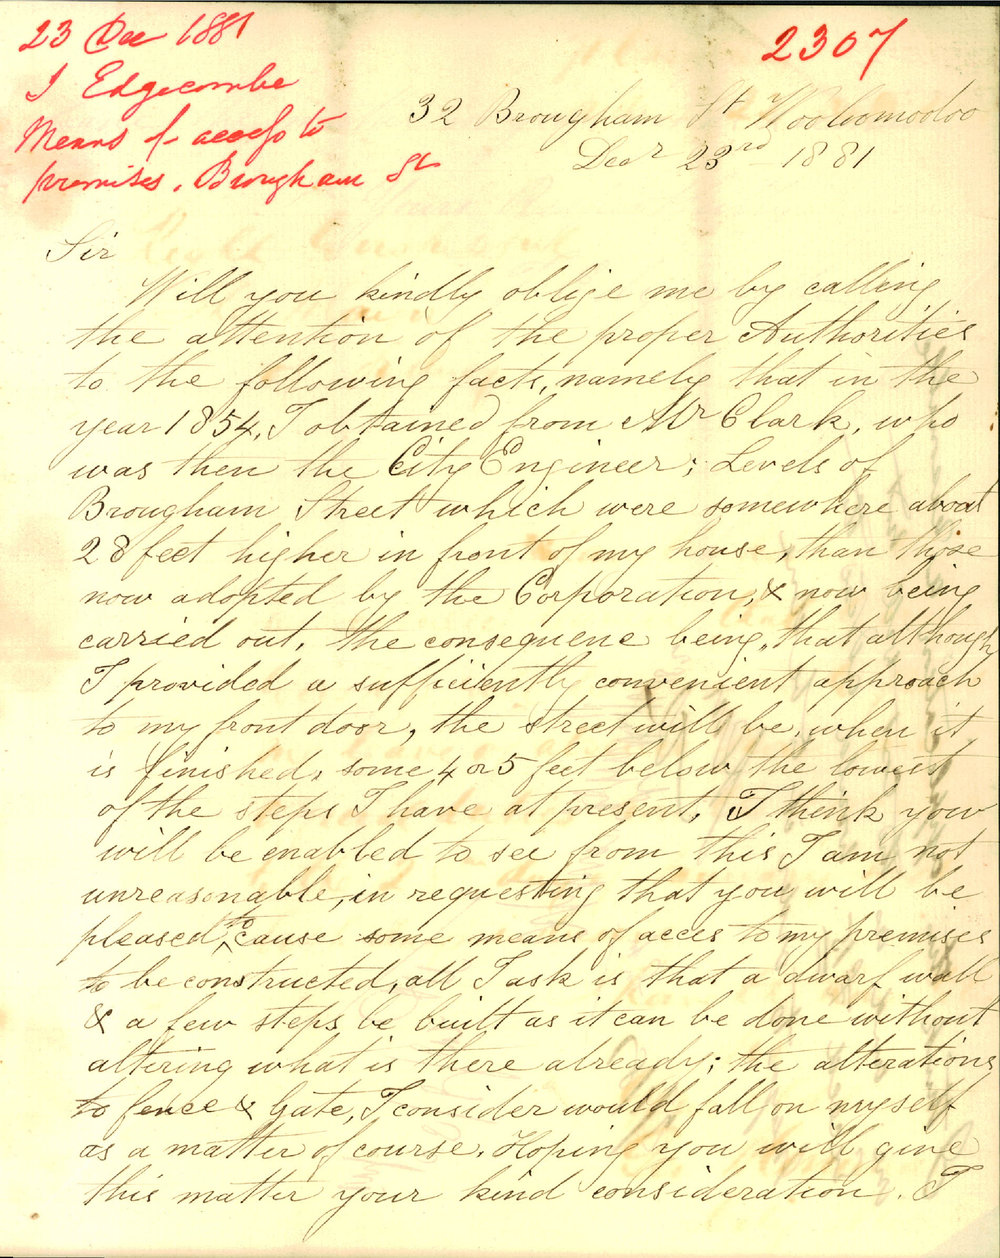 23 Dec 1881
J Edgecombe
Means of access to
premises, Brougham St
2307
32 Brougham St Woolloomooloo
Decr 23rd 1881
Sir
Will you kindly oblige me by calling
the attention of the proper Authorities
to the following facts, namely that in the
year 1854, I obtained from Mr Clark, who
was then the City Engineer; Levels of
Brougham Street which were somewhere about
28 feet higher in front of my house, than those
now adopted by the Corporation, & now being
carried out, the consequenc being, that although
I provided a suffiiently convenient approach
to my front door, the street will be, when it
is finished, some 4 or 5 feet below the lowest
of the steps I have at present, I think you
will be enabled to see from this I am not
unreasonable, in requesting that you will be
pleased to cause some means of acces to my premises
to be constructed, all I ask is that a dwarf wall
& a few steps be built as it can be done without
altering what is there already; the alterations
to fence & Gate, I consider would fall on myself
as a matter of course. Hoping you will give
this matter your kind consideration. I